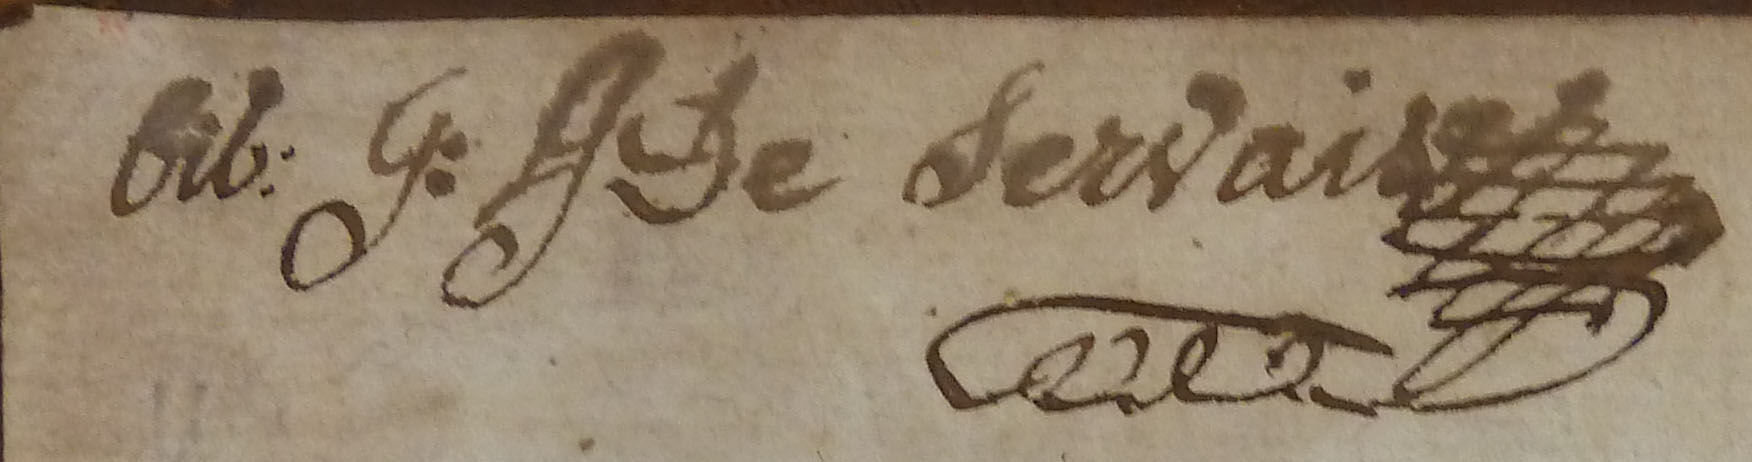 bib: G: G De Servais